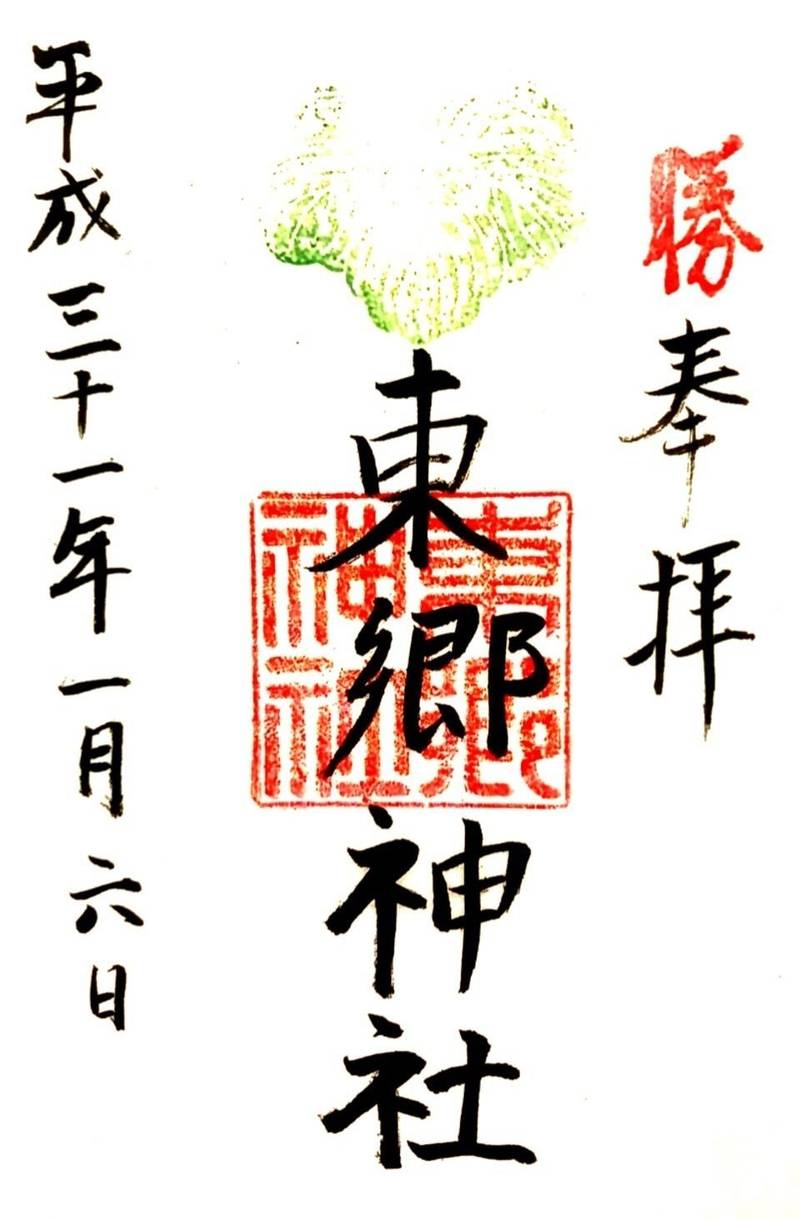 勝
奉拝
東郷神社
東郷神社
平成三十一年一月六日